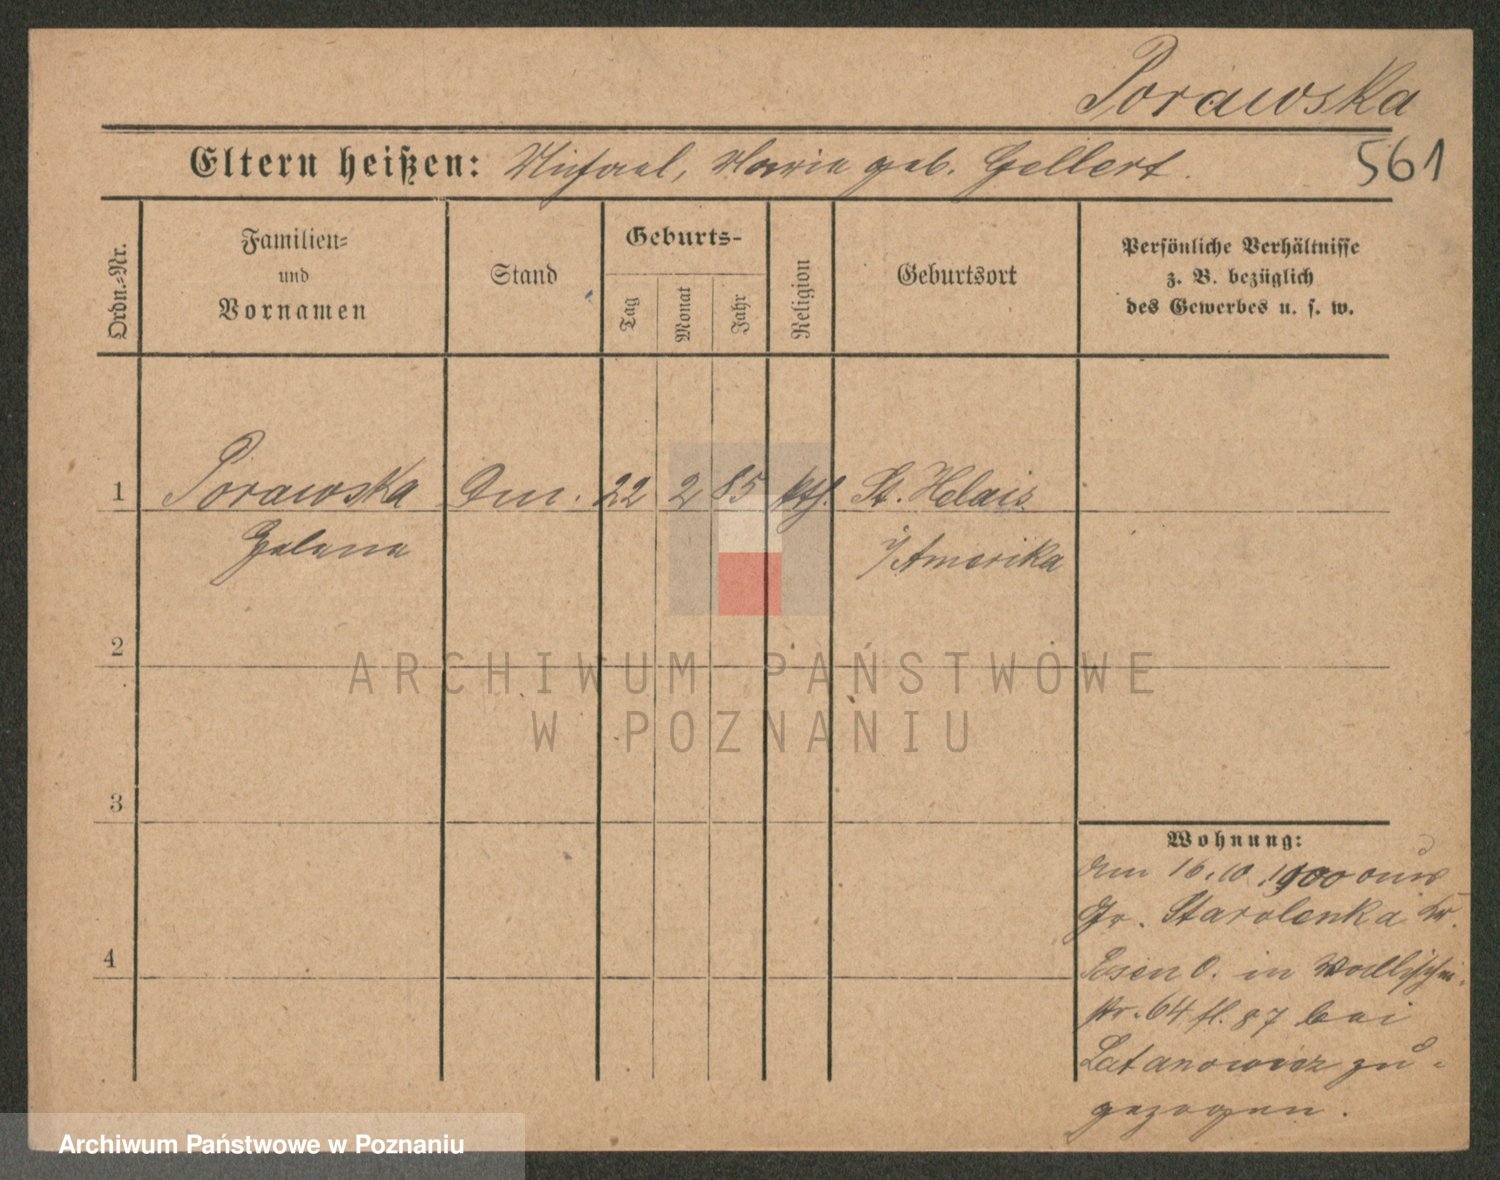 Porawska
561
Eltern heißen: Michael, Marie geb. Gellert.
Ordn.-Nr.
Familien-
und
Vornamen
Stand
Geburts-
Tag
Monat
Jahr
Religion
Geburtsort
Persönliche Verhältnisse
z. B. bezüglich
des Gewerbes u. s. w.
1 Porawska 22 2 85 kth. St. Helais
Helene i/Amerika
2
ARCHIWUM PAŃSTWOWE
W POZNANIU
3
Wohnung:
Am 16.10.1900 aus
Gr. Starolenka Kr.
Posen O. in
str. 64 fl. 87 bei
Latanowicz zu-
4
gezogen.
Archiwum Państwowe w Poznaniu